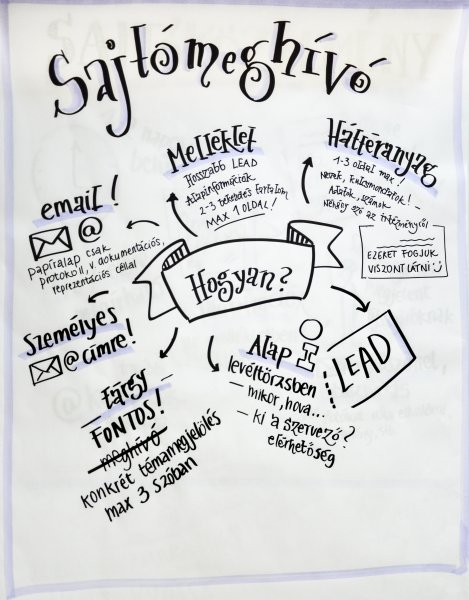 Sajtómeghívó
Melléklet
HOSSZABB LEAD
ALAPINFORMÁCIÓK
2-3 bekezdés tartalom
MAX 1 OLDAL!
Háttéranyag
1-3 oldal max!
Nevek, kulcsmondatok!
Adatok, számok
Néhány szó az intézményről
EZEKET FOGJUK
VISZONT LÁTNI
email!
@
papíralap csak
protokoll, v. dokumentációs,
reprezentációs céllal
Hogyan?
Személyes
@ címre!
Tárgy
FONTOS!
meghívó
konkrét témamegjelölés
max 3 szóban
Alap i
levéltörzsben
– mikor, hova...
– ki a szervező?
elérhetőség
LEAD